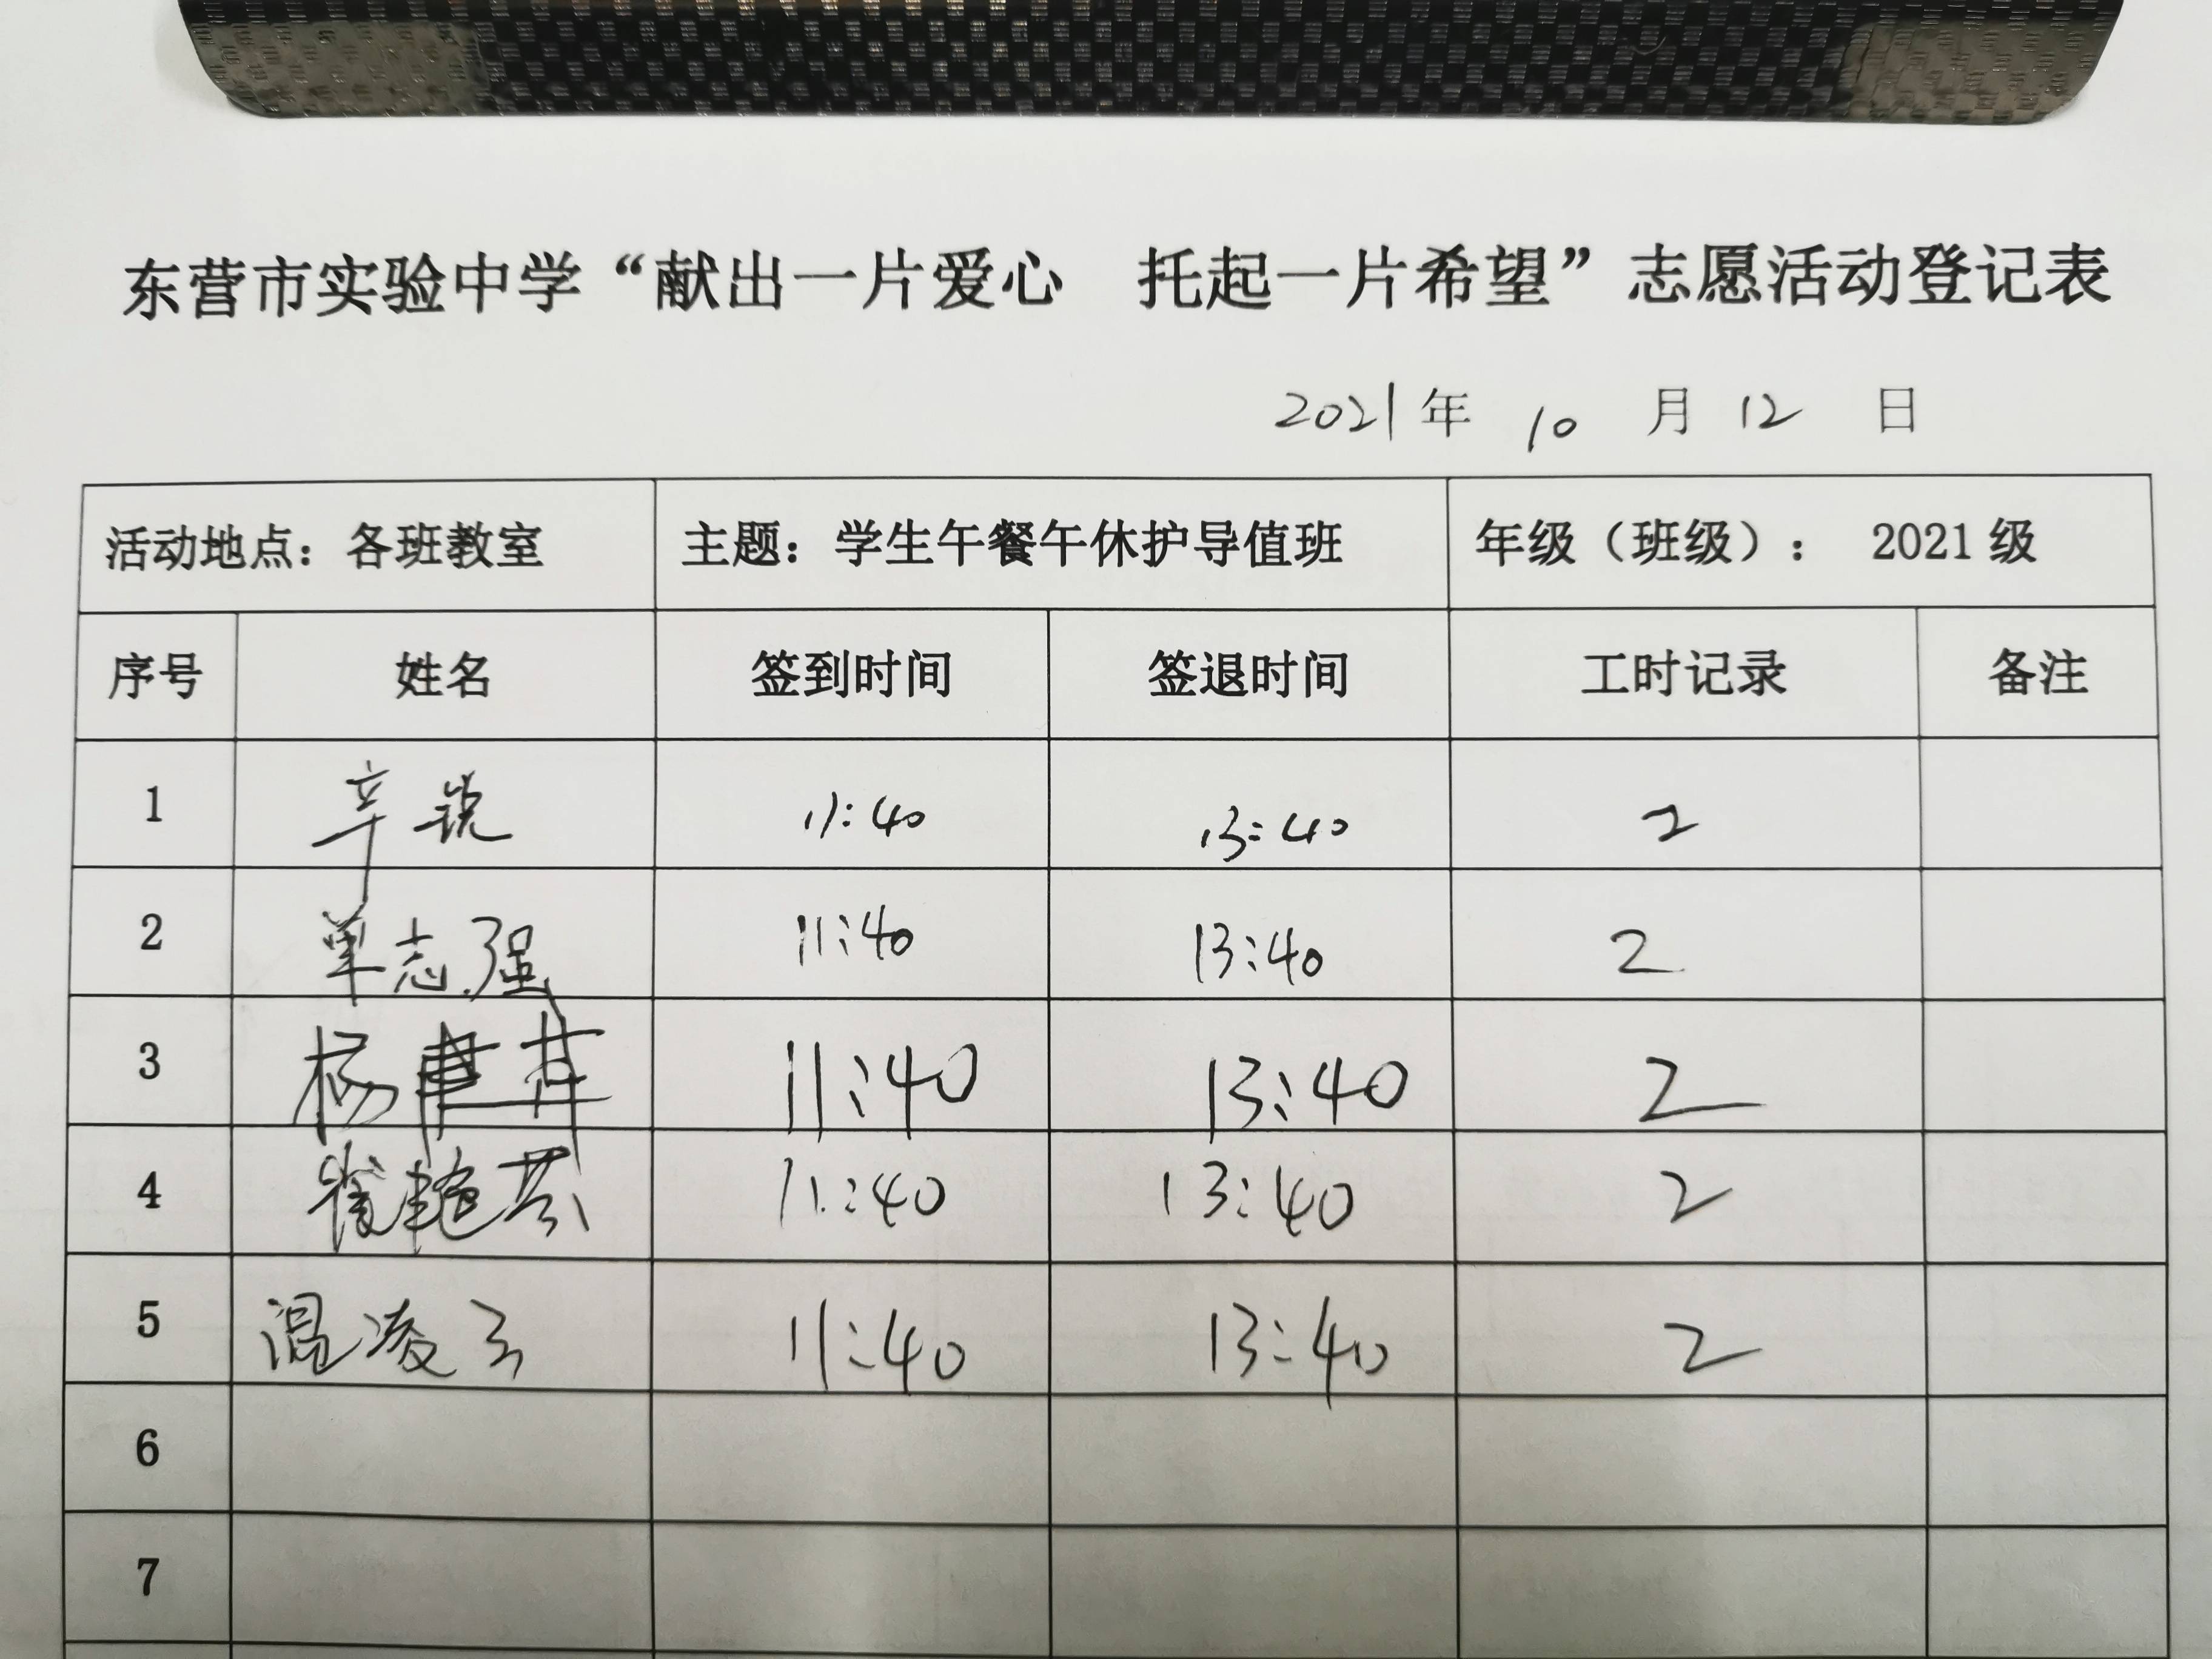 东营市实验中学“献出一片爱心 托起一片希望”志愿活动登记表
2021年 10 月 12 日
活动地点：各班教室 主题：学生午餐午休护导值班 年级（班级）： 2021级
序号 姓名 签到时间 签退时间 工时记录 备注
1 辛锐 11:40 13:40 2
2 单志强 11:40 13:40 2
3 杨 11:40 13:40 2
4 崔艳芬 11:40 13:40 2
5 温凌云 11:40 13:40 2
6
7